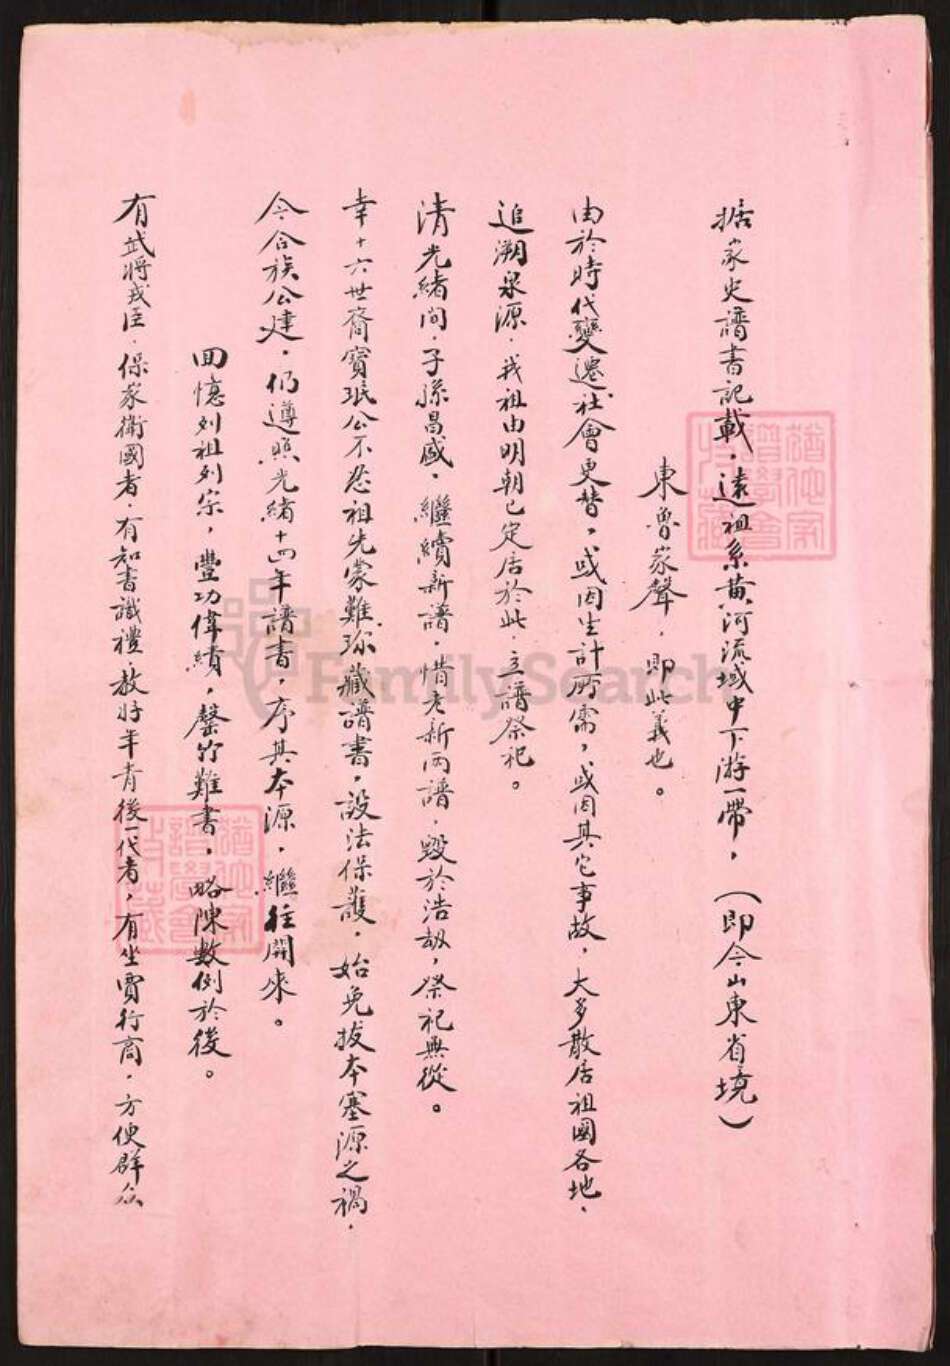 据家史譜書記載，遠祖系黄河流域中下游一帶，（即今山東省境）
東魯家聲，即此義也。
由於時代變遷，社會更替，或因生計所需，或因其它事故，大多散居祖國各地，
追溯泉源，我祖由明朝已定居於此，立譜祭祀。
清光緒间，子孫昌盛，繼續新譜，惜老新两譜，毁於浩劫，祭祀無從。
幸十六世裔寳珉公不忍祖先蒙難，珎藏譜書，設法保護，始免拔本塞源之禍，
今合族公建，仍遵照光緒十四年譜書，序其本源，繼往開來。
回憶列祖列宗，豐功偉績，罄竹難書，略陳數例於後。
有武將戎臣，保家衛國者，有知書識禮，教好年青後一代者，有坐賈行商，方便群众
猶他家
譜學會
特藏
猶他家
譜學會
特藏
FamilySearch